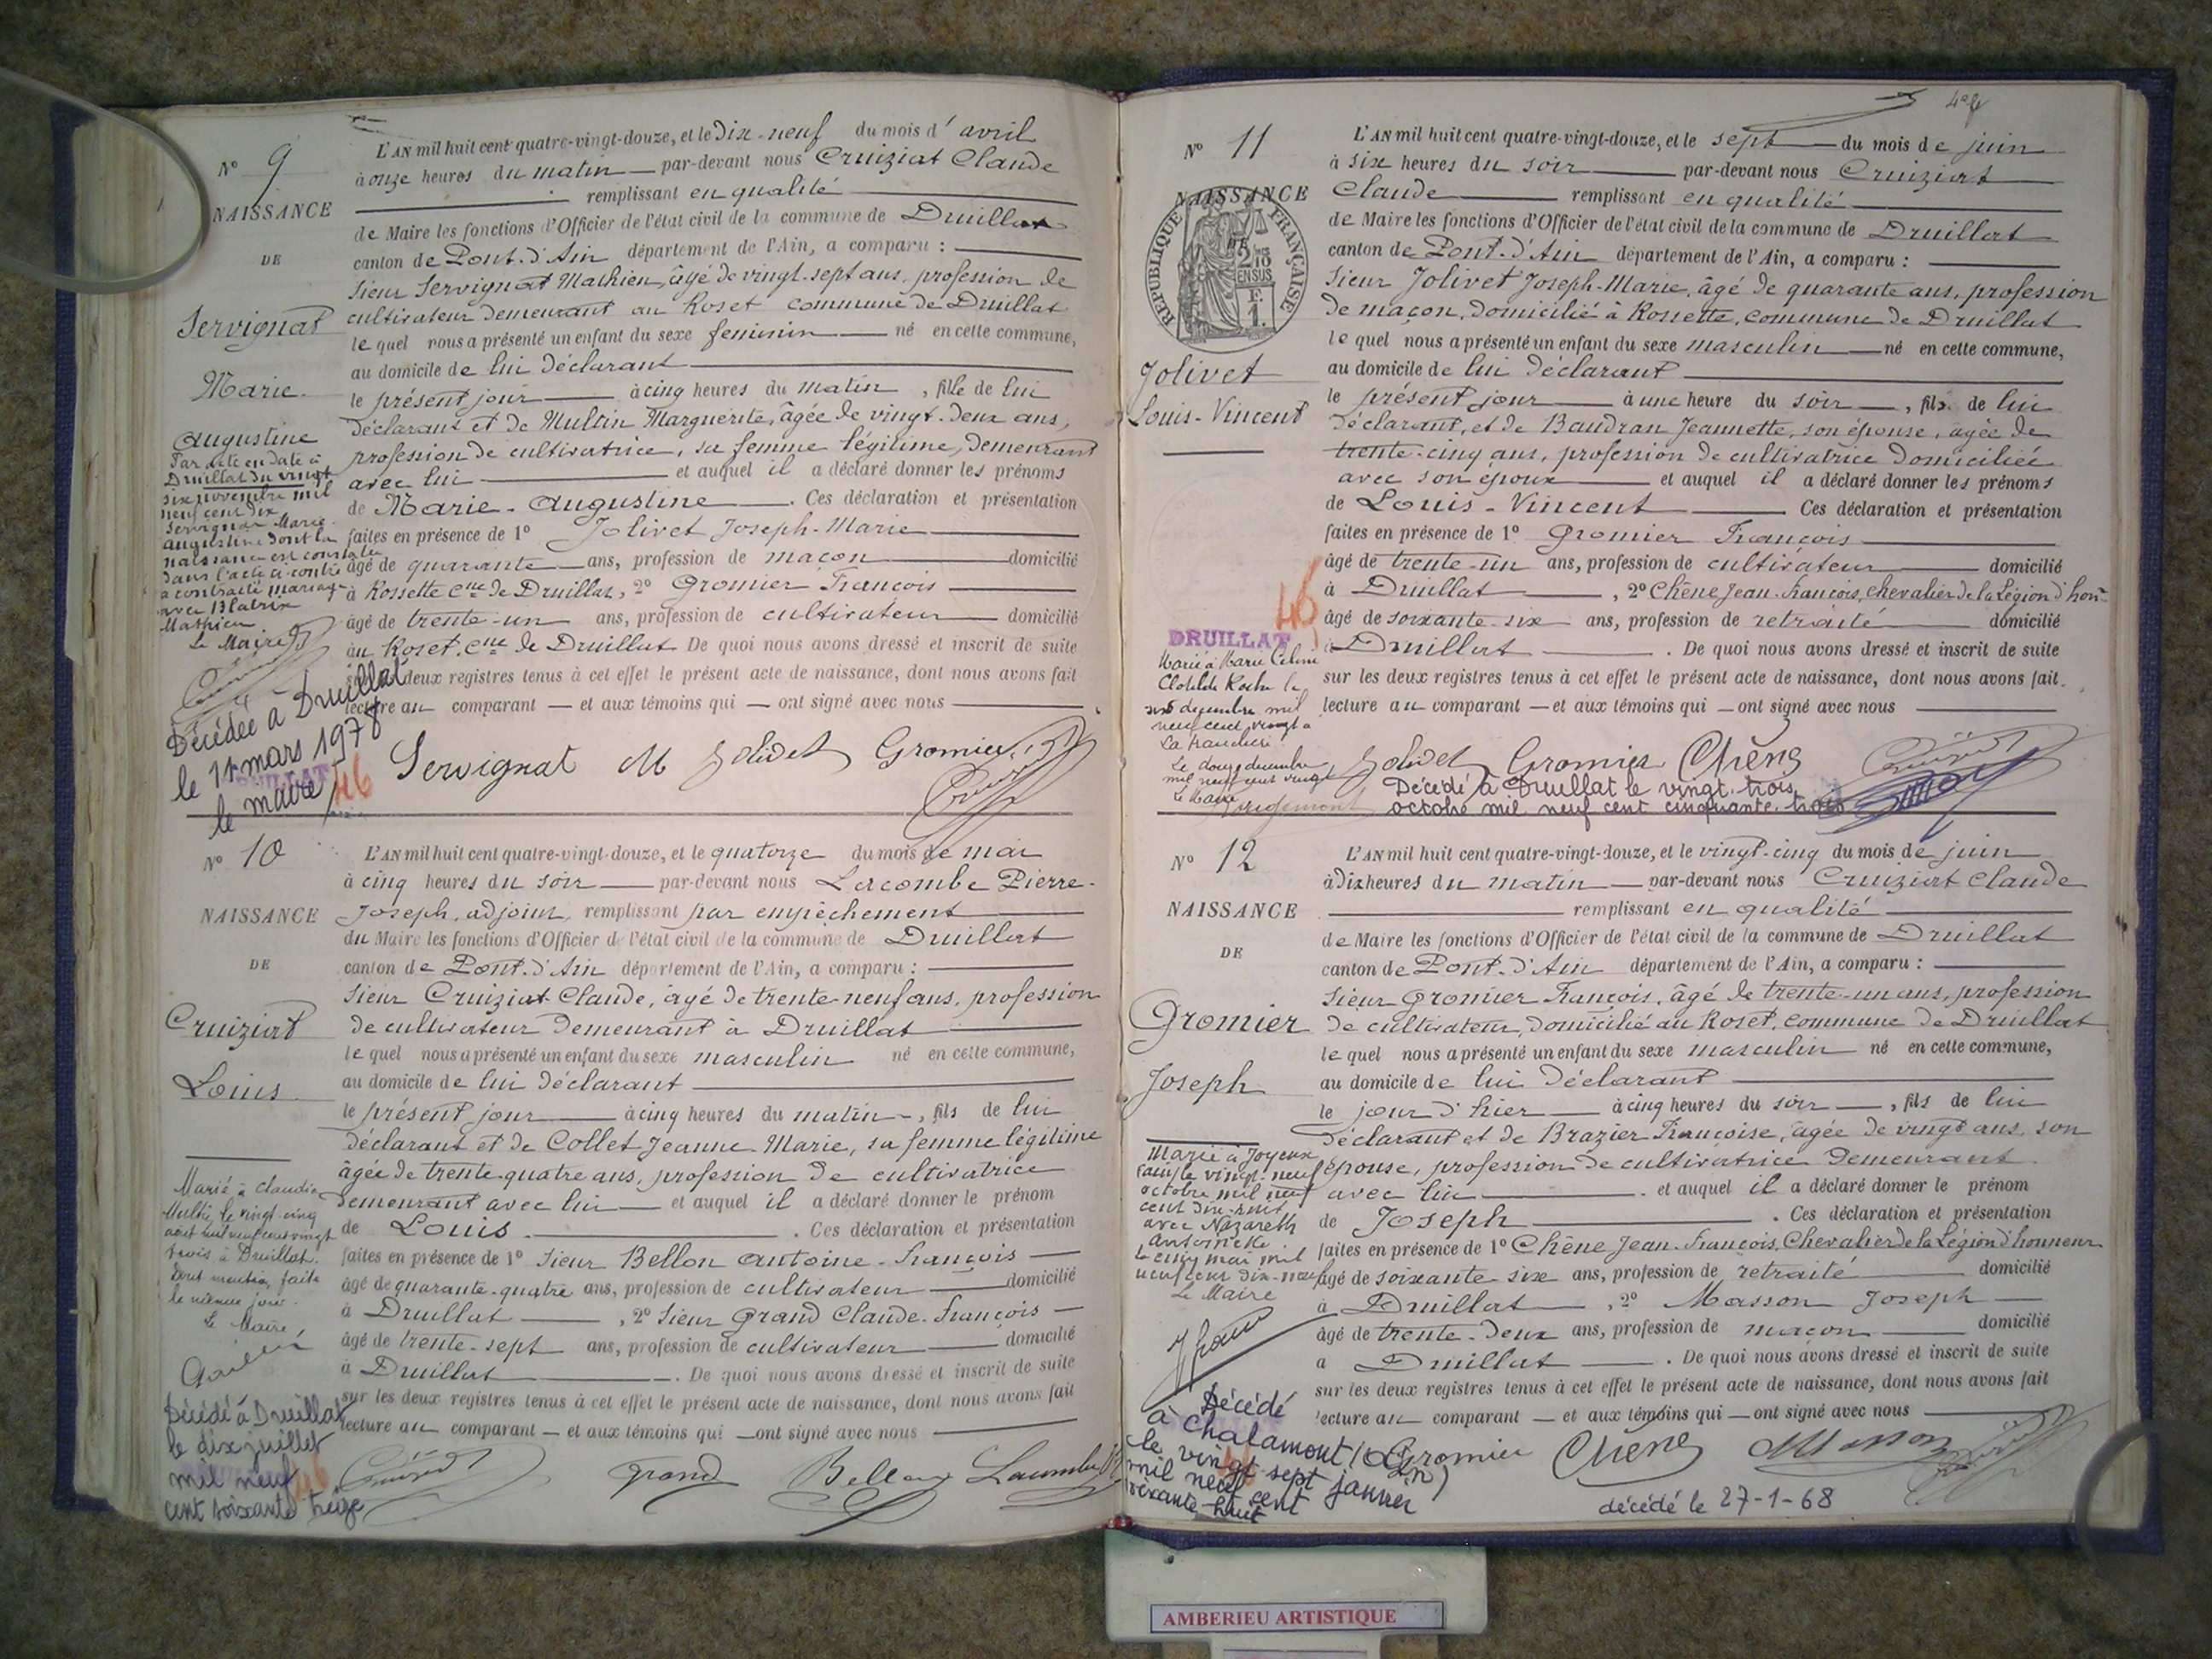 N° 9
NAISSANCE
DE
Servignat
Marie
Augustine
Par acte en date à
Druillat du vingt
six novembre mil
neuf cent dix
Servignat Marie
Augustine dont la
naissance est constatée
dans l'acte ci-contre
a contracté mariage
avec Blatrix
Mathieu
Le Maire
Décédée à Druillat
le 11 mars 1978
le maire
DRUILLAT
46
L'AN mil huit cent quatre-vingt-douze, et le Dix-neuf du mois d'avril
à onze heures du matin par-devant nous Cruiziat Claude
remplissant en qualité
de Maire les fonctions d'Officier de l'état civil de la commune de Druillat
canton de Pont-d'Ain département de l'Ain, a comparu :
Sieur Servignat Mathieu, âgé de vingt-sept ans, profession de
cultivateur demeurant au Roset commune de Druillat
lequel nous a présenté un enfant du sexe feminin né en cette commune,
au domicile de lui déclarant
le présent jour à cinq heures du matin, fille de lui
déclarant et de Multin Marguerite, âgée de vingt-deux ans,
profession de cultivatrice, sa femme légitime, demeurant
avec lui et auquel il a déclaré donner les prénoms
de Marie-Augustine. Ces déclaration et présentation
faites en présence de 1° Jolivet Joseph-Marie
âgé de quarante ans, profession de maçon domicilié
à Rossette cne de Druillat, 2° Gromier François
âgé de trente-un ans, profession de cultivateur domicilié
au Roset, cne de Druillat De quoi nous avons dressé et inscrit de suite
sur les deux registres tenus à cet effet le présent acte de naissance, dont nous avons fait
lecture au comparant — et aux témoins qui — ont signé avec nous
Servignat M Jolivet Gromier
N° 10
NAISSANCE
DE
Cruiziat
Louis
Marié à Claudia
Multin le vingt-cinq
août mil neuf cent vingt
trois à Druillat.
Dont mention faite
le même jour.
Le Maire,
Décédé à Druillat
le dix juillet
mil neuf
cent soixante treize
46
L'AN mil huit cent quatre-vingt-douze, et le quatorze du mois de mai
à cinq heures du soir par-devant nous Lacombe Pierre-
Joseph, adjoint, remplissant par empêchement
du Maire les fonctions d'Officier de l'état civil de la commune de Druillat
canton de Pont-d'Ain département de l'Ain, a comparu :
Sieur Cruiziat Claude, âgé de trente-neuf ans, profession
de cultivateur demeurant à Druillat
lequel nous a présenté un enfant du sexe masculin né en cette commune,
au domicile de lui déclarant
le présent jour à cinq heures du matin, fils de lui
déclarant et de Collet Jeanne-Marie, sa femme légitime
âgée de trente-quatre ans, profession de cultivatrice
demeurant avec lui et auquel il a déclaré donner le prénom
de Louis. Ces déclaration et présentation
faites en présence de 1° Sieur Bellon Antoine-François
âgé de quarante-quatre ans, profession de cultivateur domicilié
à Druillat, 2° Sieur Grand Claude-François
âgé de trente-sept ans, profession de cultivateur domicilié
à Druillat. De quoi nous avons dressé et inscrit de suite
sur les deux registres tenus à cet effet le présent acte de naissance, dont nous avons fait
lecture au comparant — et aux témoins qui — ont signé avec nous
Cruiziat Grand Bellon Lacombe
N° 11
NAISSANCE
RÉPUBLIQUE FRANÇAISE
2/10 EN SUS
F. 1.
Jolivet
Louis-Vincent
46
DRUILLAT
Marié à Marie Celine
Clotilde Roche le
six decembre mil
neuf cent vingt à
La Tranclière
Le douze decembre
mil neuf cent vingt
Le Maire
L'AN mil huit cent quatre-vingt-douze, et le sept du mois de juin
à six heures du soir par-devant nous Cruiziat
Claude remplissant en qualité
de Maire les fonctions d'Officier de l'état civil de la commune de Druillat
canton de Pont-d'Ain département de l'Ain, a comparu :
Sieur Jolivet Joseph-Marie, âgé de quarante ans, profession
de maçon, domicilié à Rossette, commune de Druillat
lequel nous a présenté un enfant du sexe masculin né en cette commune,
au domicile de lui déclarant
le présent jour à une heure du soir, fils de lui
déclarant, et de Baudran Jeannette, son épouse, âgée de
trente-cinq ans, profession de cultivatrice domiciliée
avec son époux et auquel il a déclaré donner les prénoms
de Louis-Vincent Ces déclaration et présentation
faites en présence de 1° Gromier François
âgé de trente-un ans, profession de cultivateur domicilié
à Druillat, 2° Chêne Jean-François, chevalier de la Légion d'honr
âgé de soixante-six ans, profession de retraité domicilié
à Druillat. De quoi nous avons dressé et inscrit de suite
sur les deux registres tenus à cet effet le présent acte de naissance, dont nous avons fait
lecture au comparant — et aux témoins qui — ont signé avec nous
Jolivet Gromier Chêne
Décédé à Druillat le vingt-trois
octobre mil neuf cent cinquante-trois
N° 12
NAISSANCE
DE
Gromier
Joseph
Marié à Joyeux
le vingt-neuf
octobre mil neuf
cent dix-huit
avec Nazareth
Antoinette
le cinq mai mil
neuf cent dix-neuf
Le Maire
Décédé
à Chalamont (Ain)
le vingt sept janvier
mil neuf cent
soixante-huit
L'AN mil huit cent quatre-vingt-douze, et le vingt-cinq du mois de juin
à dix heures du matin par-devant nous Cruiziat Claude
remplissant en qualité
de Maire les fonctions d'Officier de l'état civil de la commune de Druillat
canton de Pont-d'Ain département de l'Ain, a comparu :
Sieur Gromier François, âgé de trente-un ans, profession
de cultivateur, domicilié au Roset, commune de Druillat
lequel nous a présenté un enfant du sexe masculin né en cette commune,
au domicile de lui déclarant
le jour d'hier à cinq heures du soir, fils de lui
déclarant et de Brazier Françoise, âgée de vingt ans, son
épouse, profession de cultivatrice demeurant
avec lui. et auquel il a déclaré donner le prénom
de Joseph. Ces déclaration et présentation
faites en présence de 1° Chêne Jean-François, Chevalier de la Légion d'honneur
âgé de soixante-six ans, profession de retraité domicilié
à Druillat, 2° Masson Joseph
âgé de trente-deux ans, profession de maçon domicilié
à Druillat. De quoi nous avons dressé et inscrit de suite
sur les deux registres tenus à cet effet le présent acte de naissance, dont nous avons fait
lecture au comparant — et aux témoins qui — ont signé avec nous
Gromier Chêne Masson
décédé le 27-1-68
AMBERIEU ARTISTIQUE